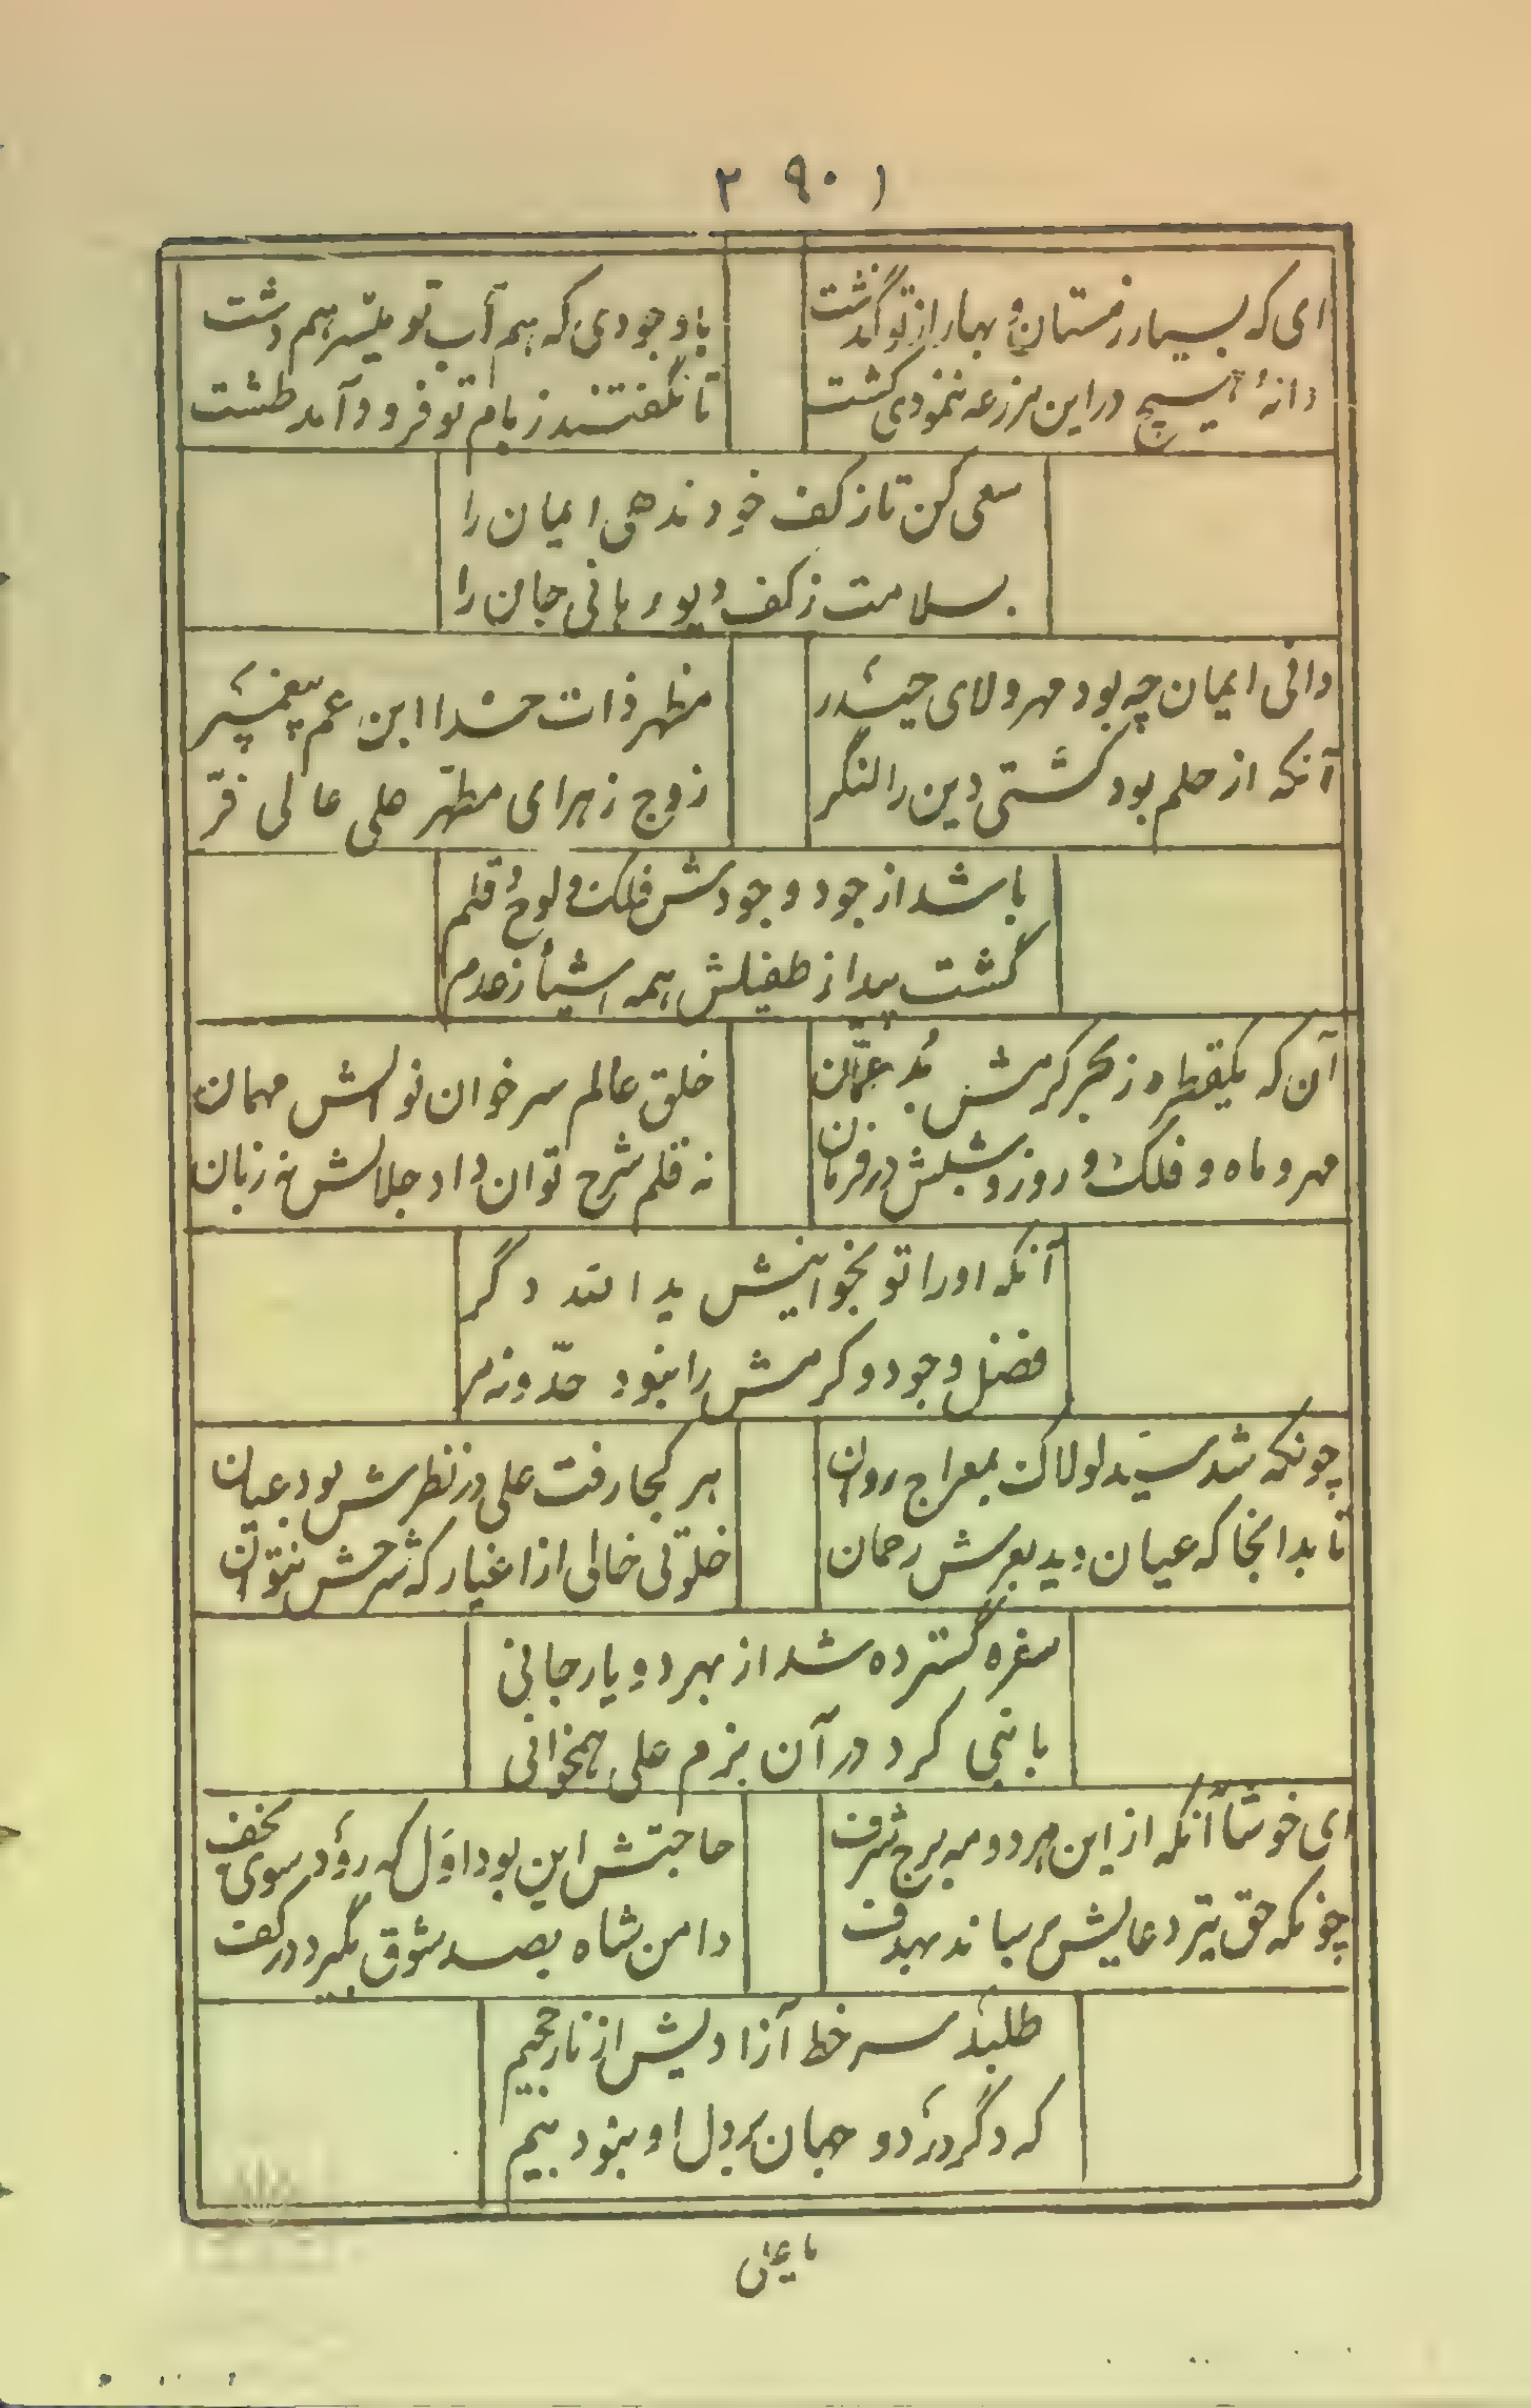 ۲ ۹۰ ۱
ای که بسیار زمستان و بهار از تو گذشت
با وجودی که هم آب تو میسر هم دشت
دانهٔ هیچ در این مزرعه ننمودی کشت
تا نگفتند ز بام تو فرود آمد طشت
سعی کن تا ز کف خود ندهی ایمان را
بسلامت ز کف دیو رهانی جان را
دانی ایمان چه بود مهر و ولای حیدر
مظهر ذات خدا ابن عم پیغمبر
آنکه از حلم بود کشتی دین را لنگر
زوج زهرای مطهر علی عالی فرّ
باشد از جود وجودش فلک و لوح و قلم
گشت پیدا ز طفیلش همه اشیأ ز عدم
آن که یکقطره ز بحر کرمش بُد عمّان
خلق عالم سر خوان نوالش مهمان
مهر و ماه و فلک و روز و شبش در فرمان
نه قلم شرح توان داد جلالش نه زبان
آنکه او را تو نخوانیش یدالله دگر
فضل و جود و کرمش را نبود حدّ و نه مر
چونکه شد سید لولاک بمعراج روان
هر کجا رفت علی در نظرش بود عیان
تا بدانجا که عیان دید بعرش رحمان
خلوتی خالی از اغیار که شرحش نتوان
سفره گسترده شد از بهر دو یار جانی
با نبی کرد در آن بزم علی همخوانی
ای خوشا آنکه از این مهر و مه برج شرف
حاجتش این بود اوّل که رود سوی نجف
چونکه حق تیر دعایش برساند بهدف
دامن شاه بصد شوق بگیرد در کف
طلبد سر خط آزادیش از نار جحیم
که دگر در دو جهان بر دل او نبود بیم
یا علی